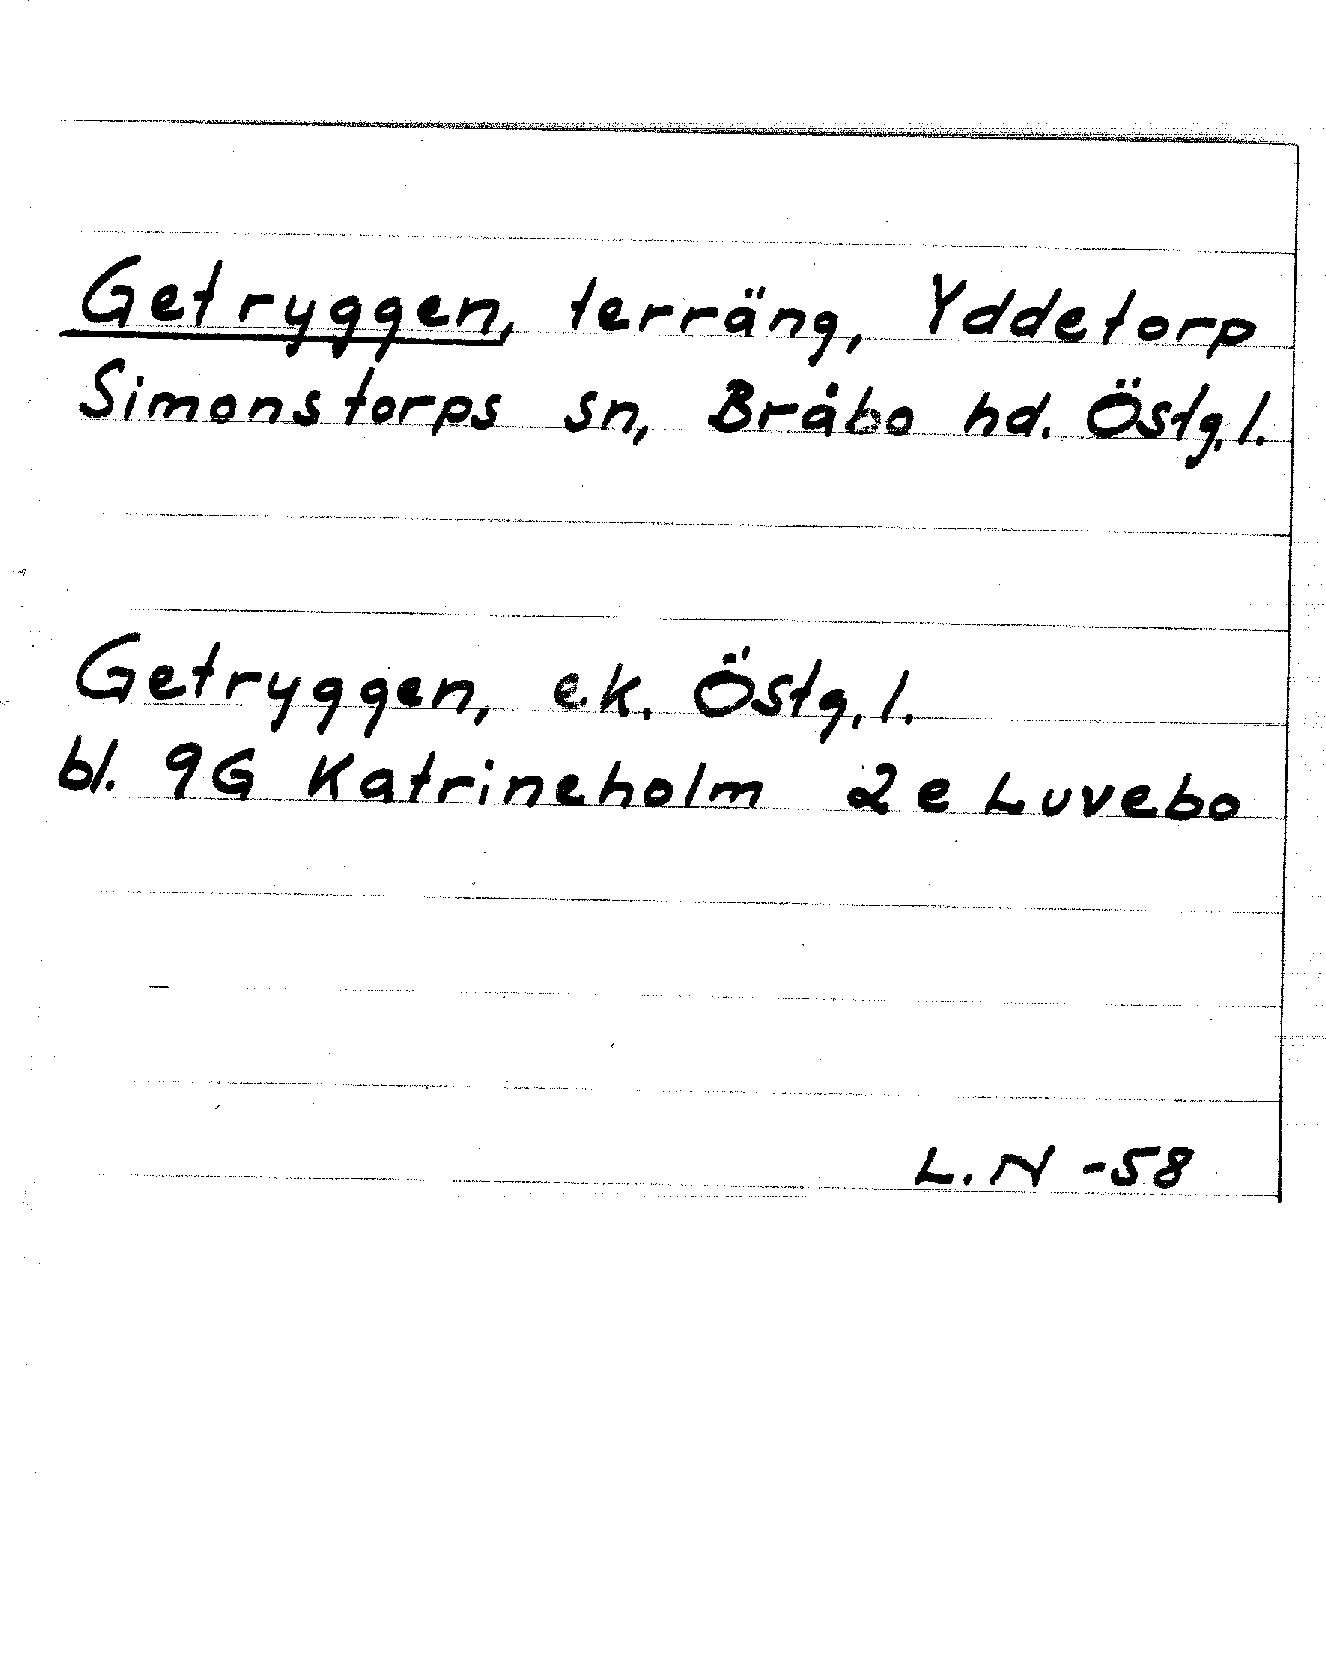 Getryggen, terräng, Yddetorp
Simonstorps sn, Bråbo hd. Östg.l.
Getryggen, ek. Östg.l.
bl. 9G Katrineholm 2e Luvebo
L.N -58